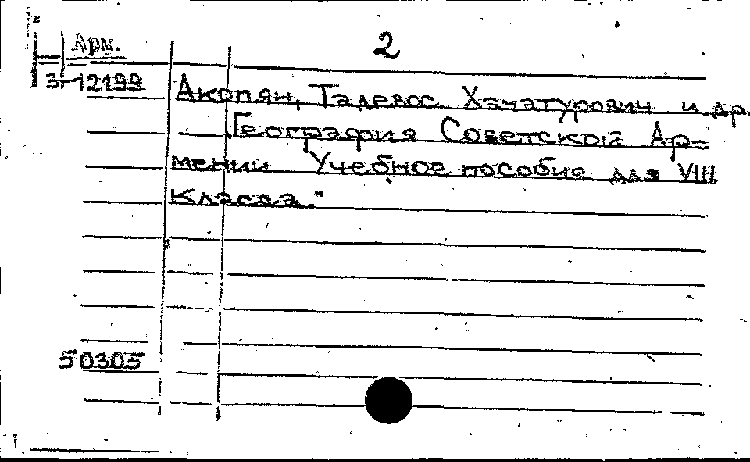 Арм.
2
3-12199
Акопян, Тадевос Хачатурович и др.
География Советской Ар=
мении Учебное пособие для VIII
класса."
50305